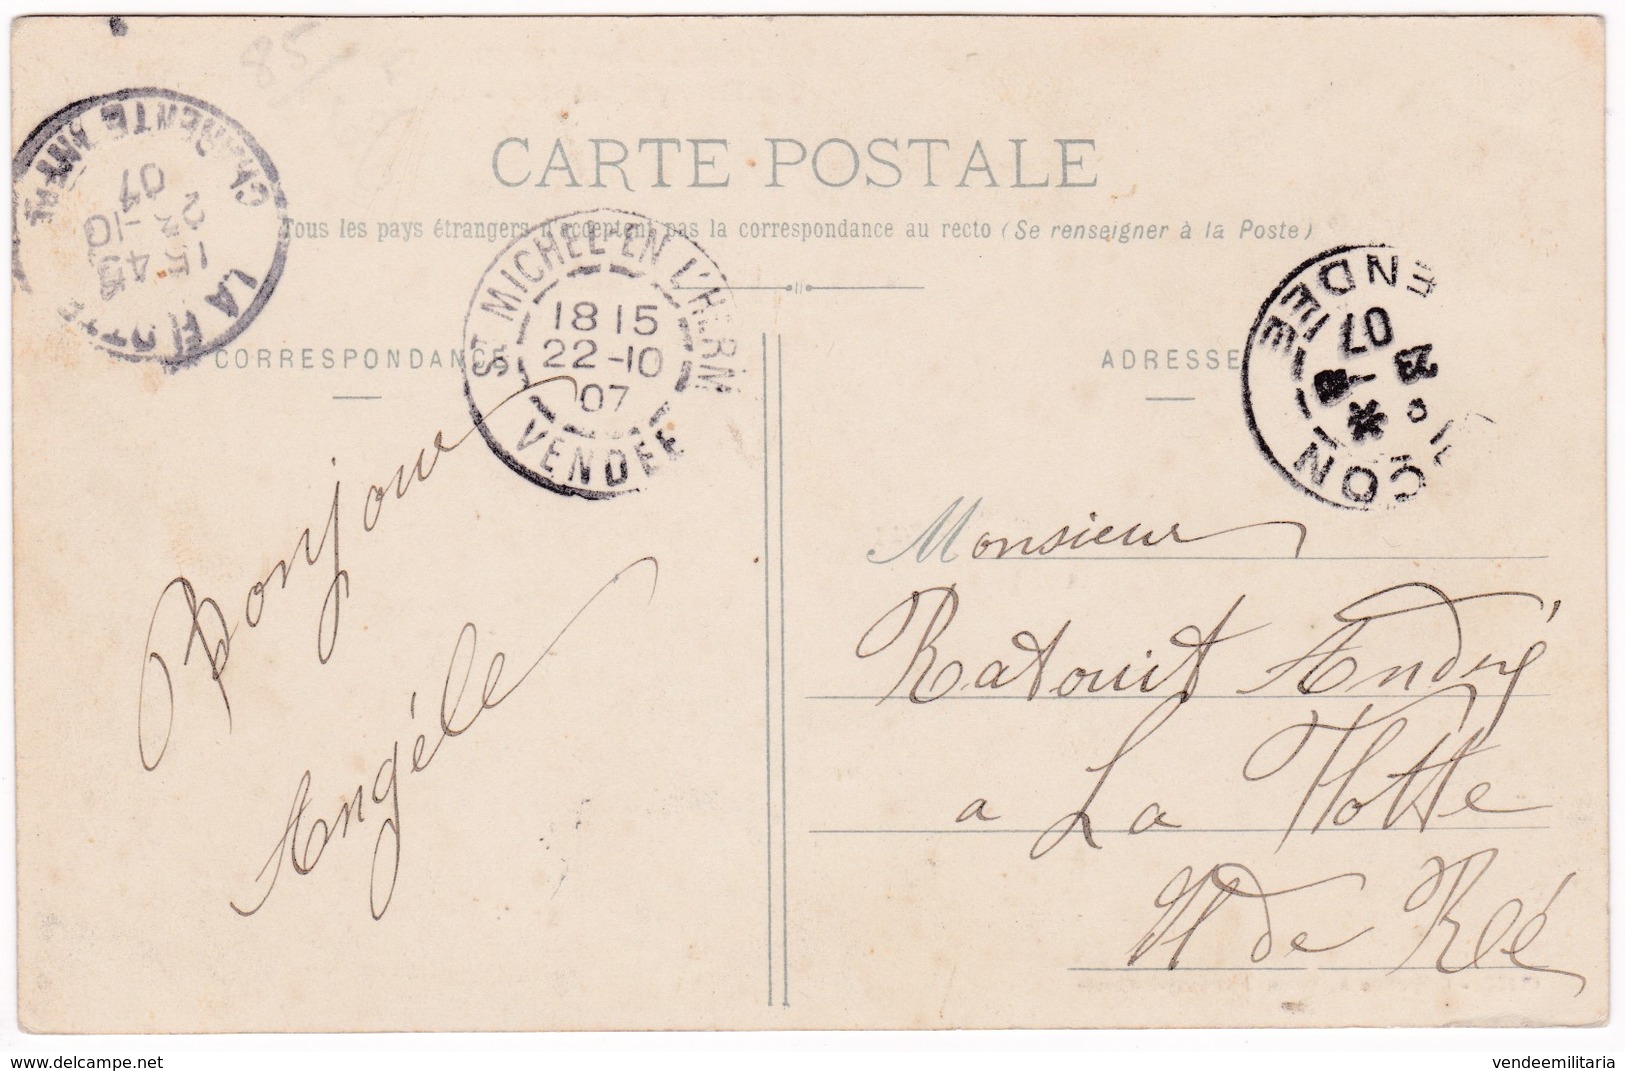 85
CARTE POSTALE
Tous les pays étrangers n'acceptent pas la correspondance au recto (Se renseigner à la Poste)
CHARENTE INFRE
LA FLOTTE
15 45
2 -10
07
ST MICHEL-EN L'HERM
18 15
22-10
07
VENDEE
ÇON
23
07
VENDEE
CORRESPONDANCE
ADRESSE
Bonjour
Angèle
Monsieur
Ratouit André
a La Flotte
Il de Ré
www.delcampe.net
vendeemilitaria